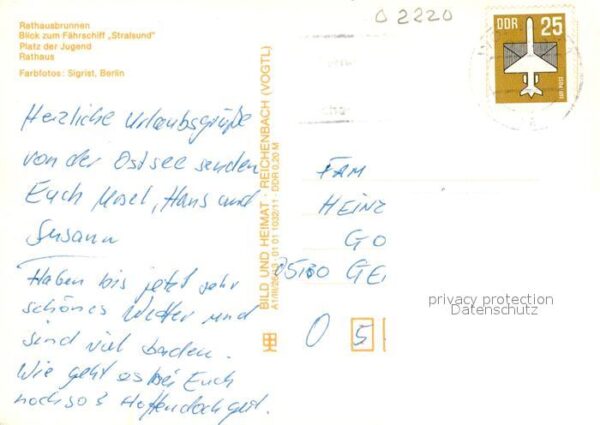 Rathausbrunnen
Blick zum Fährschiff „Stralsund"
Platz der Jugend
Rathaus
Farbfotos: Sigrist, Berlin
Herzliche Urlaubsgrüße
von der Ostsee senden
Euch Ursel, Hans und
Susann
Haben bis jetzt sehr
schönes Wetter und
sind viel baden.
Wie geht es bei Euch
noch so? Hoffen doch gut.
BILD UND HEIMAT · REICHENBACH (VOGTL)
01 01 1032/11 · DDR 0,20 M
O 2220
DDR 25
LUFTPOST
FAM
HEINZ
GO
GE
O 5
privacy protection
Datenschutz